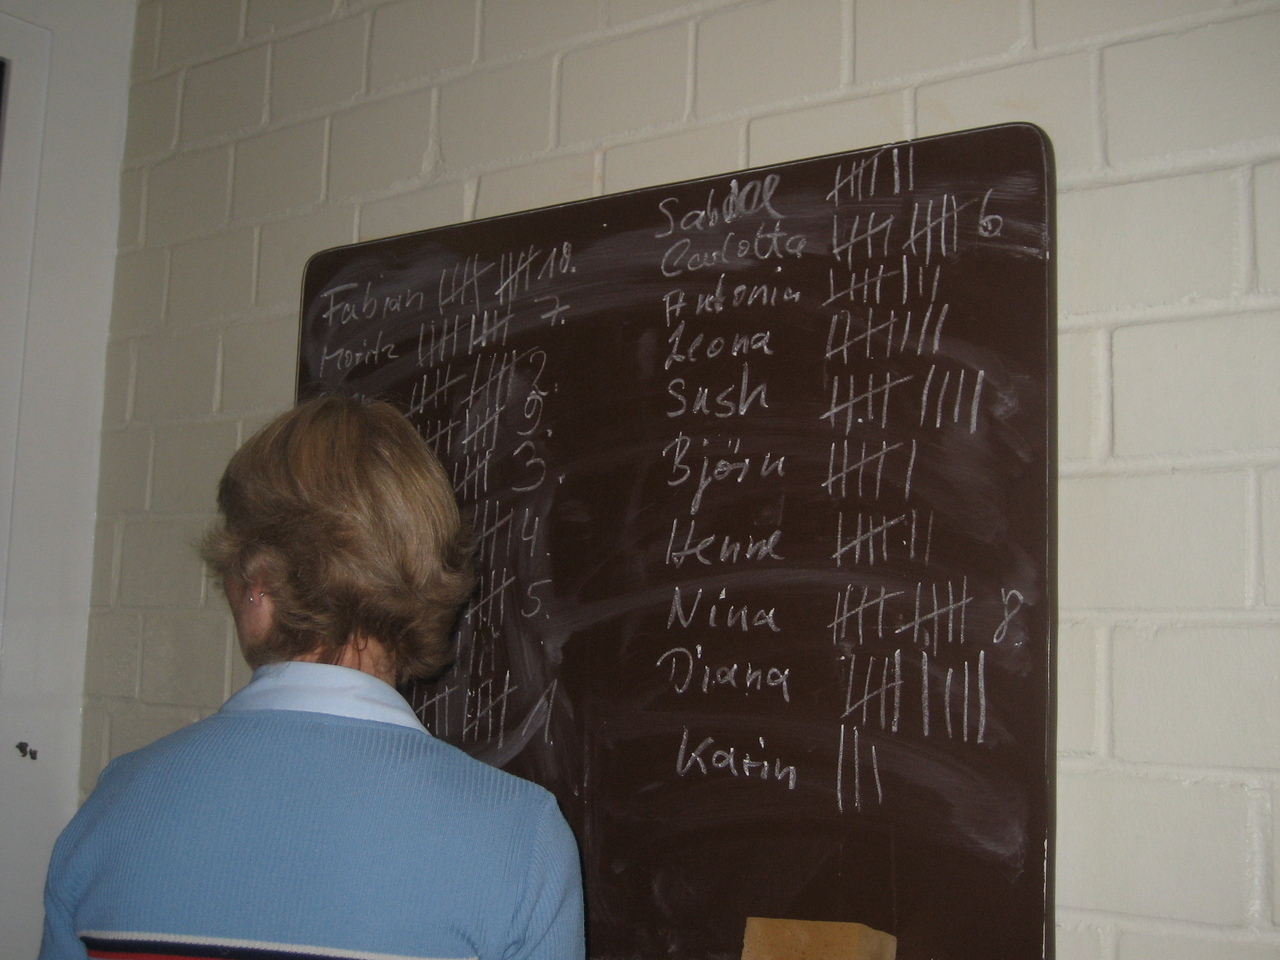 Fabian 10.
Moritz 7.
2.
9.
3.
4.
5.
1.
Carlotta 6
Antonia
Leona
Sush
Björn
Henne
Nina 8.
Diana
Karin